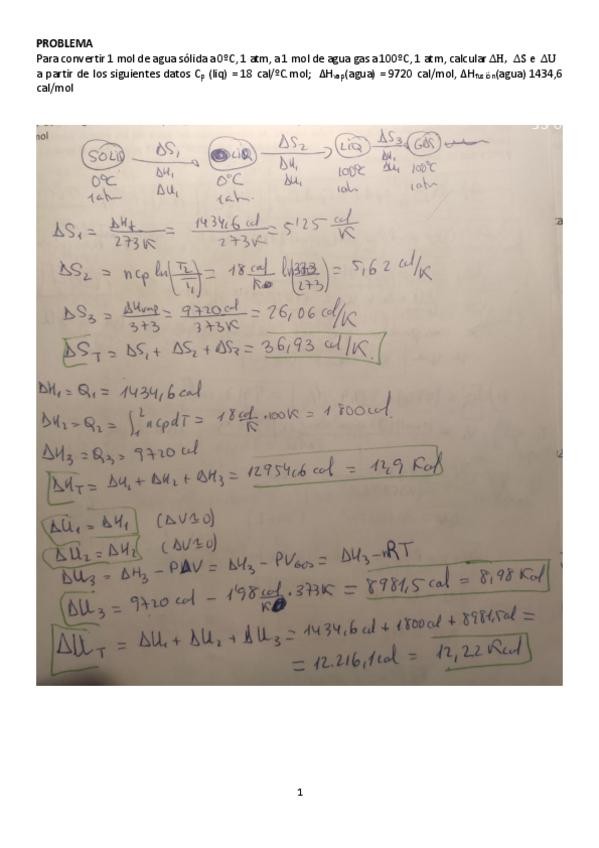 PROBLEMA
Para convertir 1 mol de agua sólida a 0ºC, 1 atm, a 1 mol de agua gas a 100ºC, 1 atm, calcular ΔH, ΔS e ΔU
a partir de los siguientes datos Cp (liq) = 18 cal/ºC mol; ΔHvap(agua) = 9720 cal/mol, ΔHfusión(agua) 1434,6
cal/mol
mol
SOLID ΔS1 LIQ ΔS2 LIQ ΔS3 GAS
ΔH1 ΔH1 ΔH1
0ºC ΔU1 0ºC ΔU1 100ºC ΔU1 100ºC
1atm 1atm. 1atm 1atm
ΔS1 = ΔHf/273K = 1434,6 cal/273K = 5'25 cal/K
ΔS2 = ncp ln(T2/T1) = 18 cal/K ln(373/273) = 5,62 cal/K
ΔS3 = ΔHvap/373 = 9720cal/373K = 26,06 cal/K
ΔST = ΔS1 + ΔS2 + ΔS3 = 36,93 cal/K.
ΔH1 = Q1 = 1434,6 cal
ΔH2 = Q2 = ∫₁² ncpdT = 18 cal/K · 100K = 1800cal.
ΔH3 = Q3 = 9720 cal
ΔHT = ΔH1 + ΔH2 + ΔH3 = 12954,6 cal = 12,9 Kcal
ΔU1 = ΔH1 (ΔV≅0)
ΔU2 = ΔH2 (ΔV≅0)
ΔU3 = ΔH3 - PΔV = ΔH3 - PVgas = ΔH3 - nRT
ΔU3 = 9720 cal - 1'98 cal/K · 373K = 8981,5 cal = 8,98 Kcal
ΔUT = ΔU1 + ΔU2 + ΔU3 = 1434,6 cal + 1800cal + 8981,5cal =
= 12.216,1cal = 12,22 Kcal
1